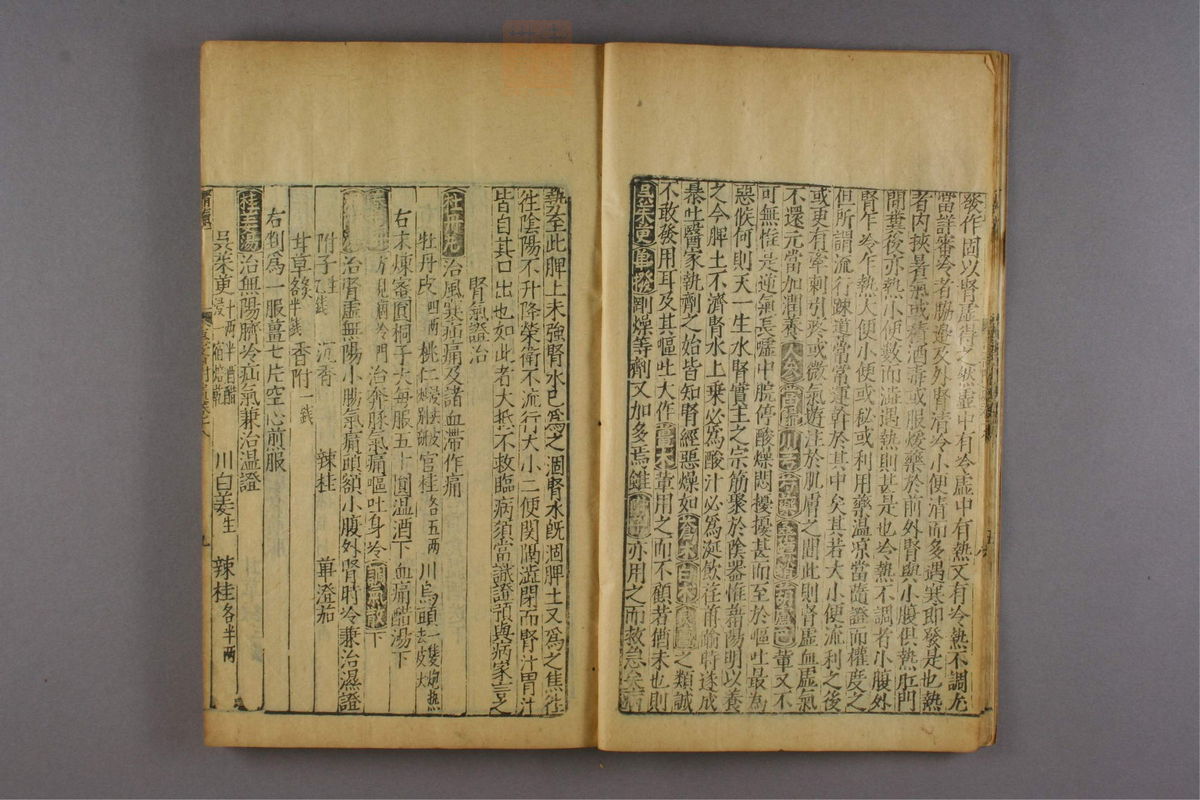 發作固以腎虛得之然虛中有冷虛中有熱又有冷熱不調尤
當詳審冷者脇邊及外腎清冷小便清而多遇寒即發是也熱
者內挾暑氣或積酒毒或服煖藥於前外腎與小腹俱熱肛門
間糞後亦熱小便數而澁遇熱則甚是也冷熱不調者小腹外
腎乍冷乍熱大便小便或秘或利用藥溫凉當隨證而權度之
但所謂流行疎道常常運幹於其中矣其若大小便流利之後
或更有牽刺引疼或微氣遊注於肌膚之間此則腎虛血虛氣
不還元當加潤養人參當歸川芎芍藥輩又不
可無惟是逆氣長噓中脘停酸燥悶擾擾甚而至於嘔吐最為
惡候何則天一生水腎實主之宗筋聚於陰器惟藉陽明以養
之今脾土不濟腎水上乗必為酸汁必為涎飲荏苒踰時遂成
暴吐醫家執劑之始皆知腎經惡燥如蒼朮白朮之類誠
不敢發用耳及其嘔吐大作舊木輩用之而不顧若猶未也則
吳茱萸蓽撥剛燥等劑又加多焉雖亦用之而救急矣病
勢至此脾土未強腎水已為之涸腎水既涸脾土又為之焦往
徃陰陽不升降榮衛不流行大小二便関隔澁閉而腎汁胃汁
皆自其口出也如此者大抵不救臨病須當識證預與病家言之
腎氣證治
牡丹丸治風寒疝痛及諸血滯作痛
牡丹皮四兩 桃仁 官桂各五兩 川烏頭一隻炮熟去皮
右末煉蜜圓桐子大每服五十圓溫酒下血痛醋湯下
治奔豚氣痛嘔吐身冷下
治腎虛無陽小腸氣痛頭額小腹外腎時冷兼治濕證
附子 沉香 辣桂 蓽澄茄
甘草各半錢 香附一錢
右剉為一服薑七片空心煎服
桂薑湯治無陽臍冷疝氣兼治溫證
吳茱萸 川白姜生 辣桂各半兩